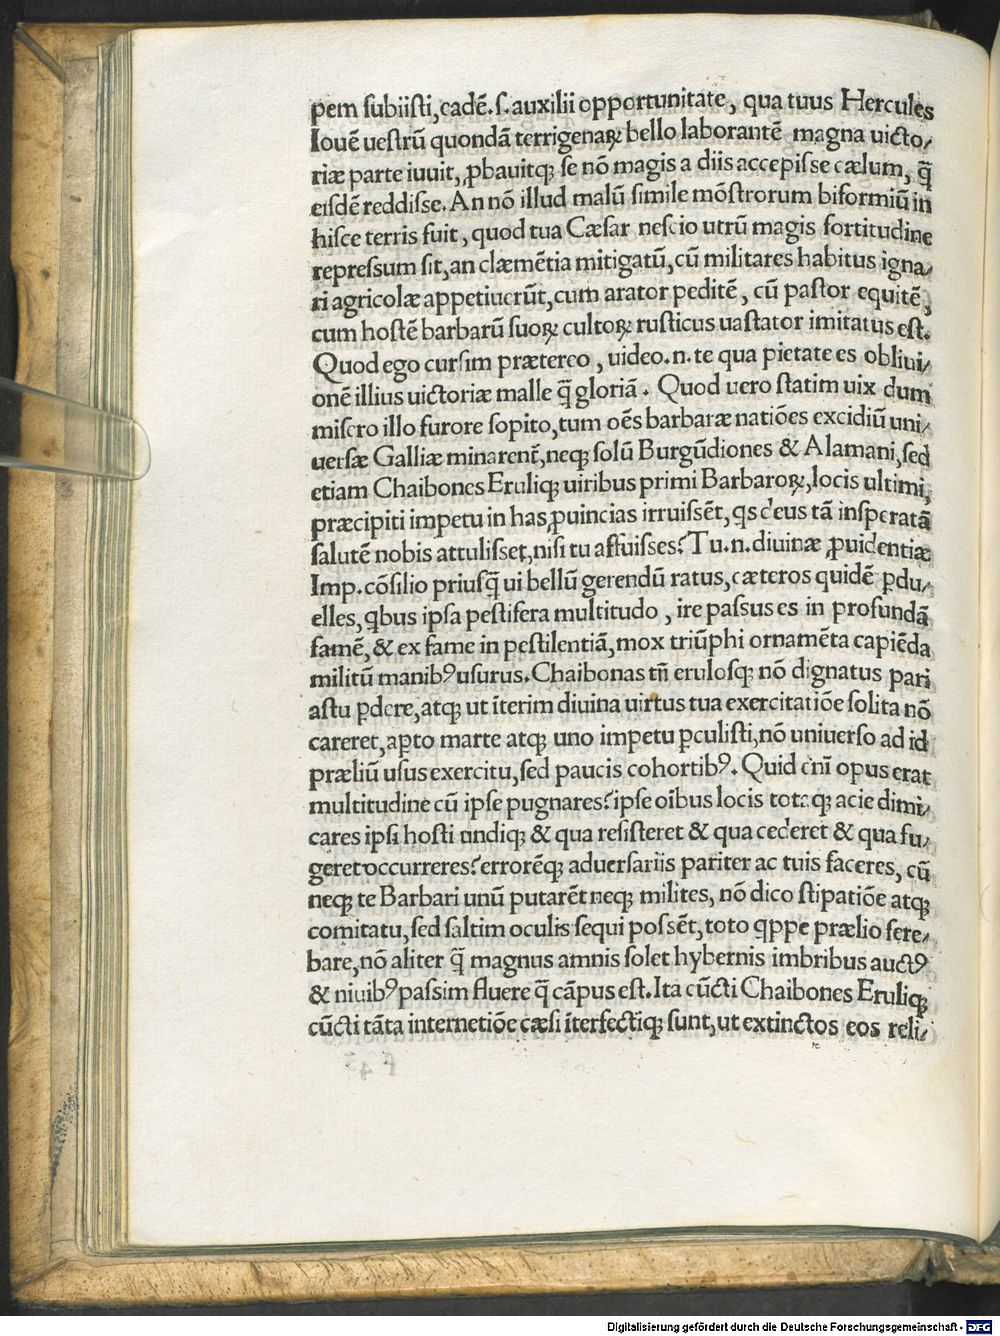 pem ſubiiſti, eadē. ſ. auxilii opportunitate, qua tuus Hercules
Iouē ueſtrū quondā terrigenaꝝ bello laborantē magna uicto⸗
riæ parte iuuit, ꝓbauitqꝫ ſe nō magis a diis accepiſse cælum, q̄
eiſdē reddiſse. An nō illud malū ſimile mōſtrorum biformiū in
hiſce terris fuit, quod tua Cæſar neſcio utrū magis fortitudine
repreſsum ſit, an clæmētia mitigatū, cū militares habitus igna⸗
ri agricolæ appetiuerūt, cum arator peditē, cū paſtor equitē,
cum hoſtē barbarū ſuoꝝ cultoꝝ ruſticus uaſtator imitatus eſt.
Quod ego curſim prætereo, uideo. n. te qua pietate es obliui⸗
onē illius uictoriæ malle q̄ gloriā. Quod uero ſtatim uix dum
miſero illo furore ſopito, tum oēs barbaræ natiōes excidiū uni⸗
uerſæ Galliæ minarent̄, neqꝫ ſolū Burgūdiones & Alamani, ſed
etiam Chaibones Eruliqꝫ uiribus primi Barbaroꝝ, locis ultimi,
præcipiti impetu in has ꝓuincias irruiſsēt, qs deus tā inſperatā
ſalutē nobis attuliſset, niſi tu affuiſses? Tu. n. diuinæ ꝓuidentiæ
Imp. cōſilio priuſq̄ ui bellū gerendū ratus, cæteros quidē ꝑdu⸗
elles, qbus ipſa peſtifera multitudo, ire paſsus es in profundā
famē, & ex fame in peſtilentiā, mox triūphi ornamēta capiēda
militū manibꝰ uſurus. Chaibonas tn̄ eruloſqꝫ nō dignatus pari
aſtu ꝑdere, atqꝫ ut īterim diuina uirtus tua exercitatiōe ſolita nō
careret, aꝑto marte atqꝫ uno impetu ꝑculiſti, nō uniuerſo ad id
præliū uſus exercitu, ſed paucis cohortibꝰ. Quid en̄i opus erat
multitudine cū ipſe pugnares? ipſe oībus locis totaqꝫ acie dimi⸗
cares ipſi hoſti undiqꝫ & qua reſiſteret & qua cederet & qua fu⸗
geret occurreres? errorēqꝫ aduerſariis pariter ac tuis faceres, cū
neqꝫ te Barbari unū putarēt neqꝫ milites, nō dico ſtipatiōe atqꝫ
comitatu, ſed ſaltim oculis ſequi poſsēt, toto qppe prælio fere⸗
bare, nō aliter q̄ magnus amnis ſolet hybernis imbribus auctꝰ
& niuibꝰ paſsim fluere q̄ cāpus eſt. Ita cūcti Chaibones Eruliqꝫ
cūcti tāta internetiōe cæſi īterfectiqꝫ ſunt, ut extinctos eos reli⸗
Digitalisierung gefördert durch die Deutsche Forschungsgemeinschaft - DFG